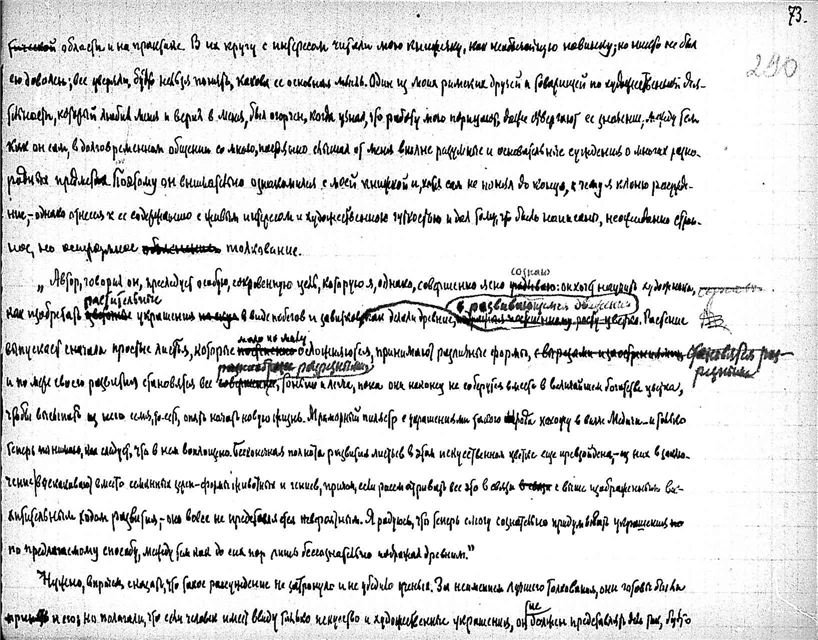 73.
290
области и на практике. В их кругу с интересом читали мою книжку, как необычайную новинку; но никто не был
ею доволен; все уверяли, будто нельзя понять, какова ее основная мысль. Один из моих римских друзей и товарищей по художественной дея-
тельности, который любил меня и верил в меня, был огорчен, когда узнал, что работу мою порицают, даже отвергают ее значение, между тем
как он сам, в долговременном общении со мною, слышал от меня вполне разумные и основательные суждения о многих разно-
родных предметах. Поэтому он внимательно ознакомился с моей книжкой и, хотя сам не понял до конца, к чему я клоню рассужде-
ние, – однако отнесся к ее содержанию с живым интересом и художественною чуткостью и дал тому, что было написано, неожиданно стран-
ное, но остроумное толкование.
„Автор, говорил он, преследует особую, сокровенную цель, которую я, однако, совершенно ясно сознаю: он хочет научить художника,
как изобретать растительные украшения в виде побегов и завитков, как делали древние, в развивающемся движении. Растение
выпускает сначала простые листья, которые мало по малу осложняются, принимают различные формы, становятся раз-
резными
и по мере своего развития становятся все тоньше и легче, пока они наконец не соберутся вместе в величайшем богатстве цветка,
чтобы высыпать из него семя, то-есть, опять начать новую жизнь. Мраморный пилястр с украшениями такого рода находу в вилле Медичи – и только
теперь понимаю, как следует, что в нем воплощено. Бесконечная полнота развития листьев в этом искусственном цветке еще превзойдена, – из них в заклю-
чение выскакивают вместо семянных зерен – формы животных и гениев, причем, если рассматривать все это в связи с выше изображенным вос-
хитительным ходом развития, – оно вовсе не представляется невероятным. Я радуюсь, что теперь смогу сознательно придумывать украшения
по предлагаемому способу, между тем как до сих пор лишь бессознательно подражал древним."
Нужно, впрочем сказать, что такое рассуждение не затронуло и не убедило ученых. За неимением лучшего толкования, они готовы были
и его; но полагали, что если человек имеет ввиду только искусство и художественные украшения, он не должен представлять дела так, будто